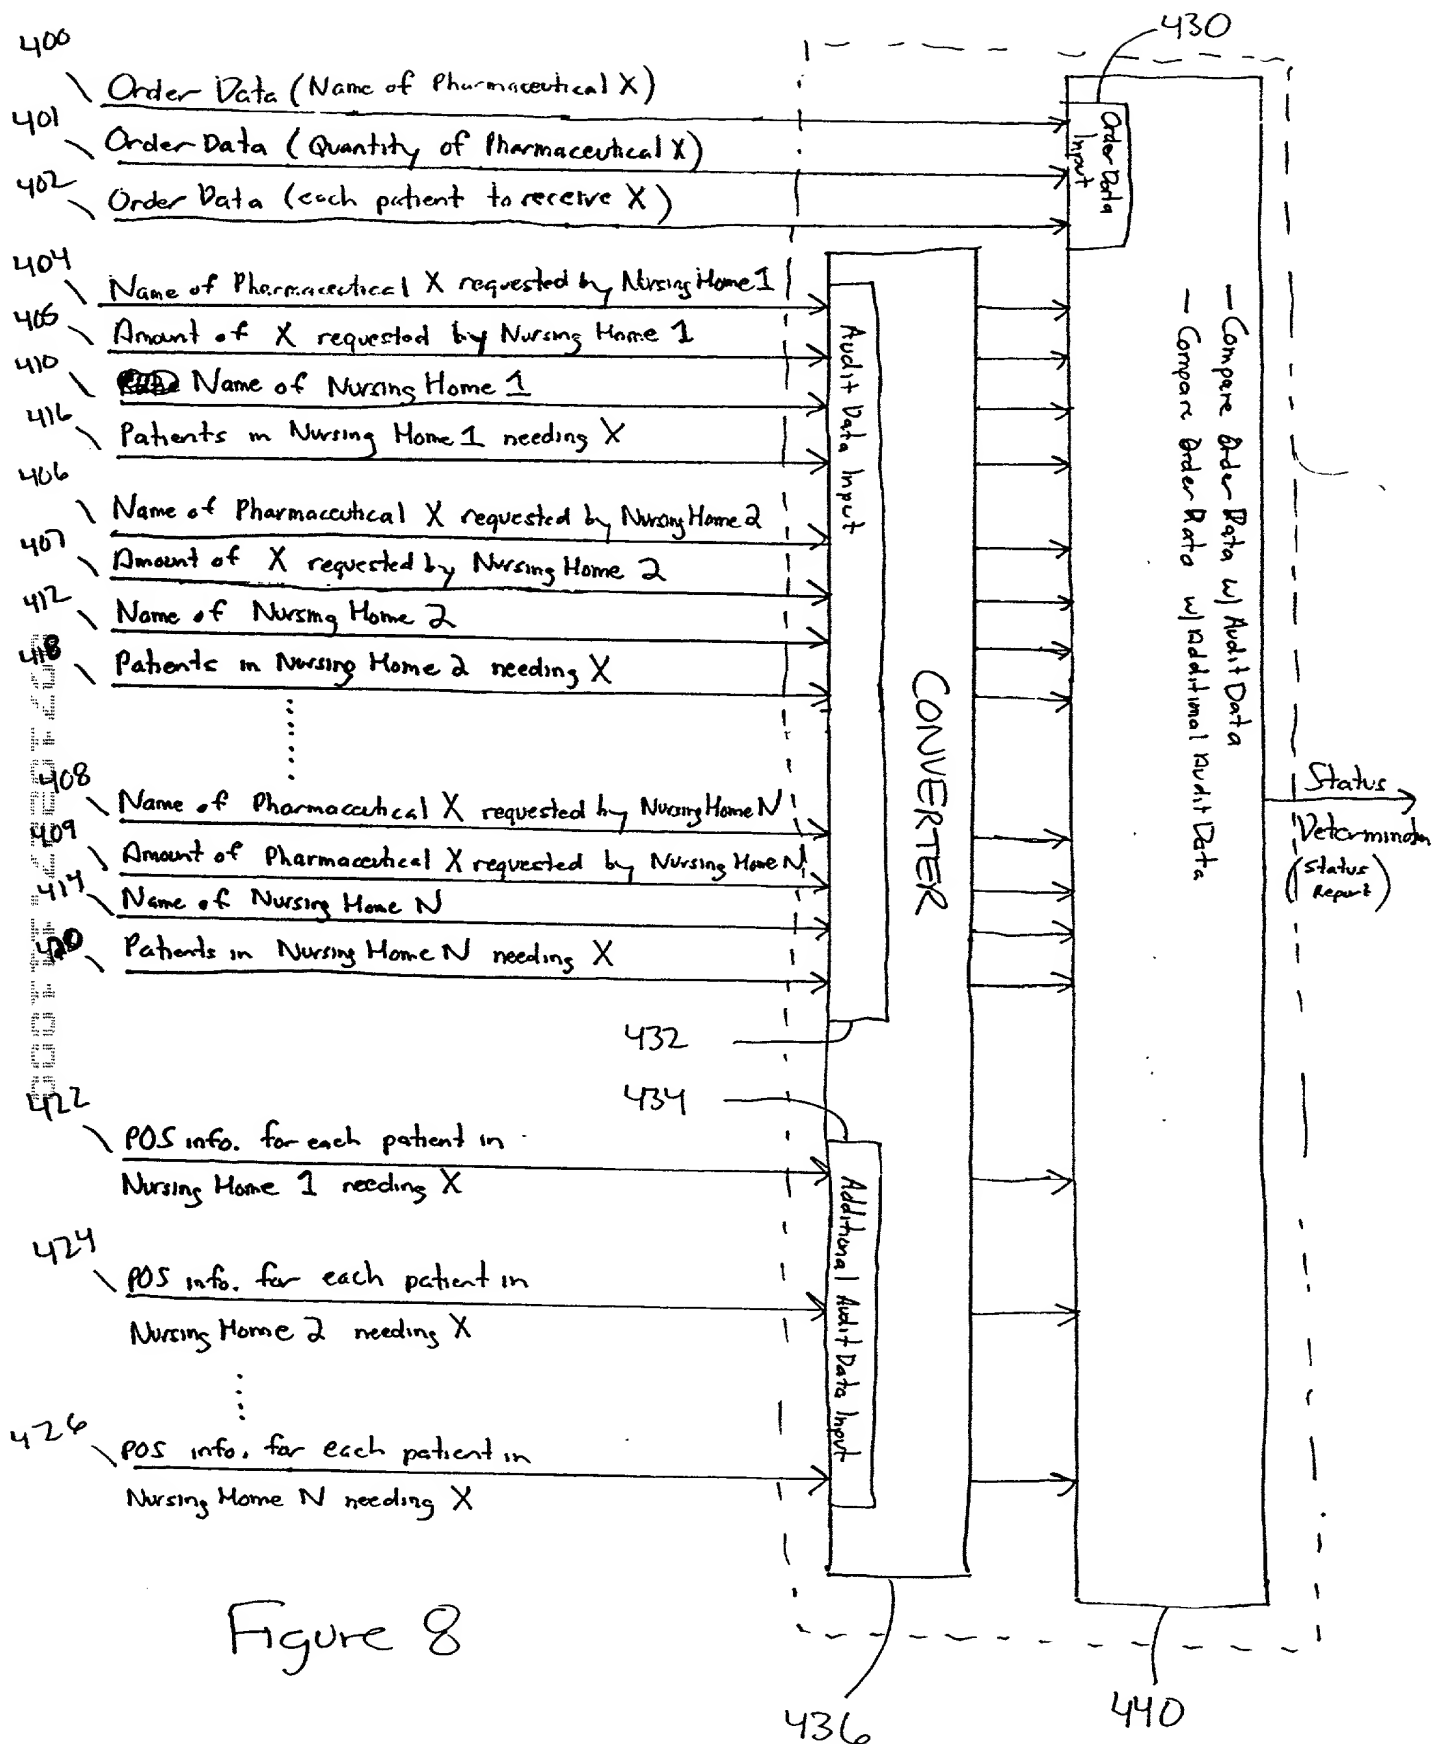 400
Order Data (Name of Pharmaceutical X)
401
Order Data (Quantity of Pharmaceutical X)
402
Order Data (each patient to receive X)
404
Name of Pharmaceutical X requested by Nursing Home 1
405
Amount of X requested by Nursing Home 1
410
Name of Nursing Home 1
416
Patients in Nursing Home 1 needing X
406
Name of Pharmaceutical X requested by Nursing Home 2
407
Amount of X requested by Nursing Home 2
412
Name of Nursing Home 2
418
Patients in Nursing Home 2 needing X
408
Name of Pharmaceutical X requested by Nursing Home N
409
Amount of Pharmaceutical X requested by Nursing Home N
414
Name of Nursing Home N
420
Patients in Nursing Home N needing X
422
POS info. for each patient in
Nursing Home 1 needing X
424
POS info. for each patient in
Nursing Home 2 needing X
426
POS info. for each patient in
Nursing Home N needing X
430
Order Data
Input
Audit Data Input
432
434
Additional Audit Data Input
CONVERTER
- Compare Order Data w/ Audit Data
- Compare Order Data w/ Additional Audit Data
Status
Determination
(Status
Report)
436
440
Figure 8